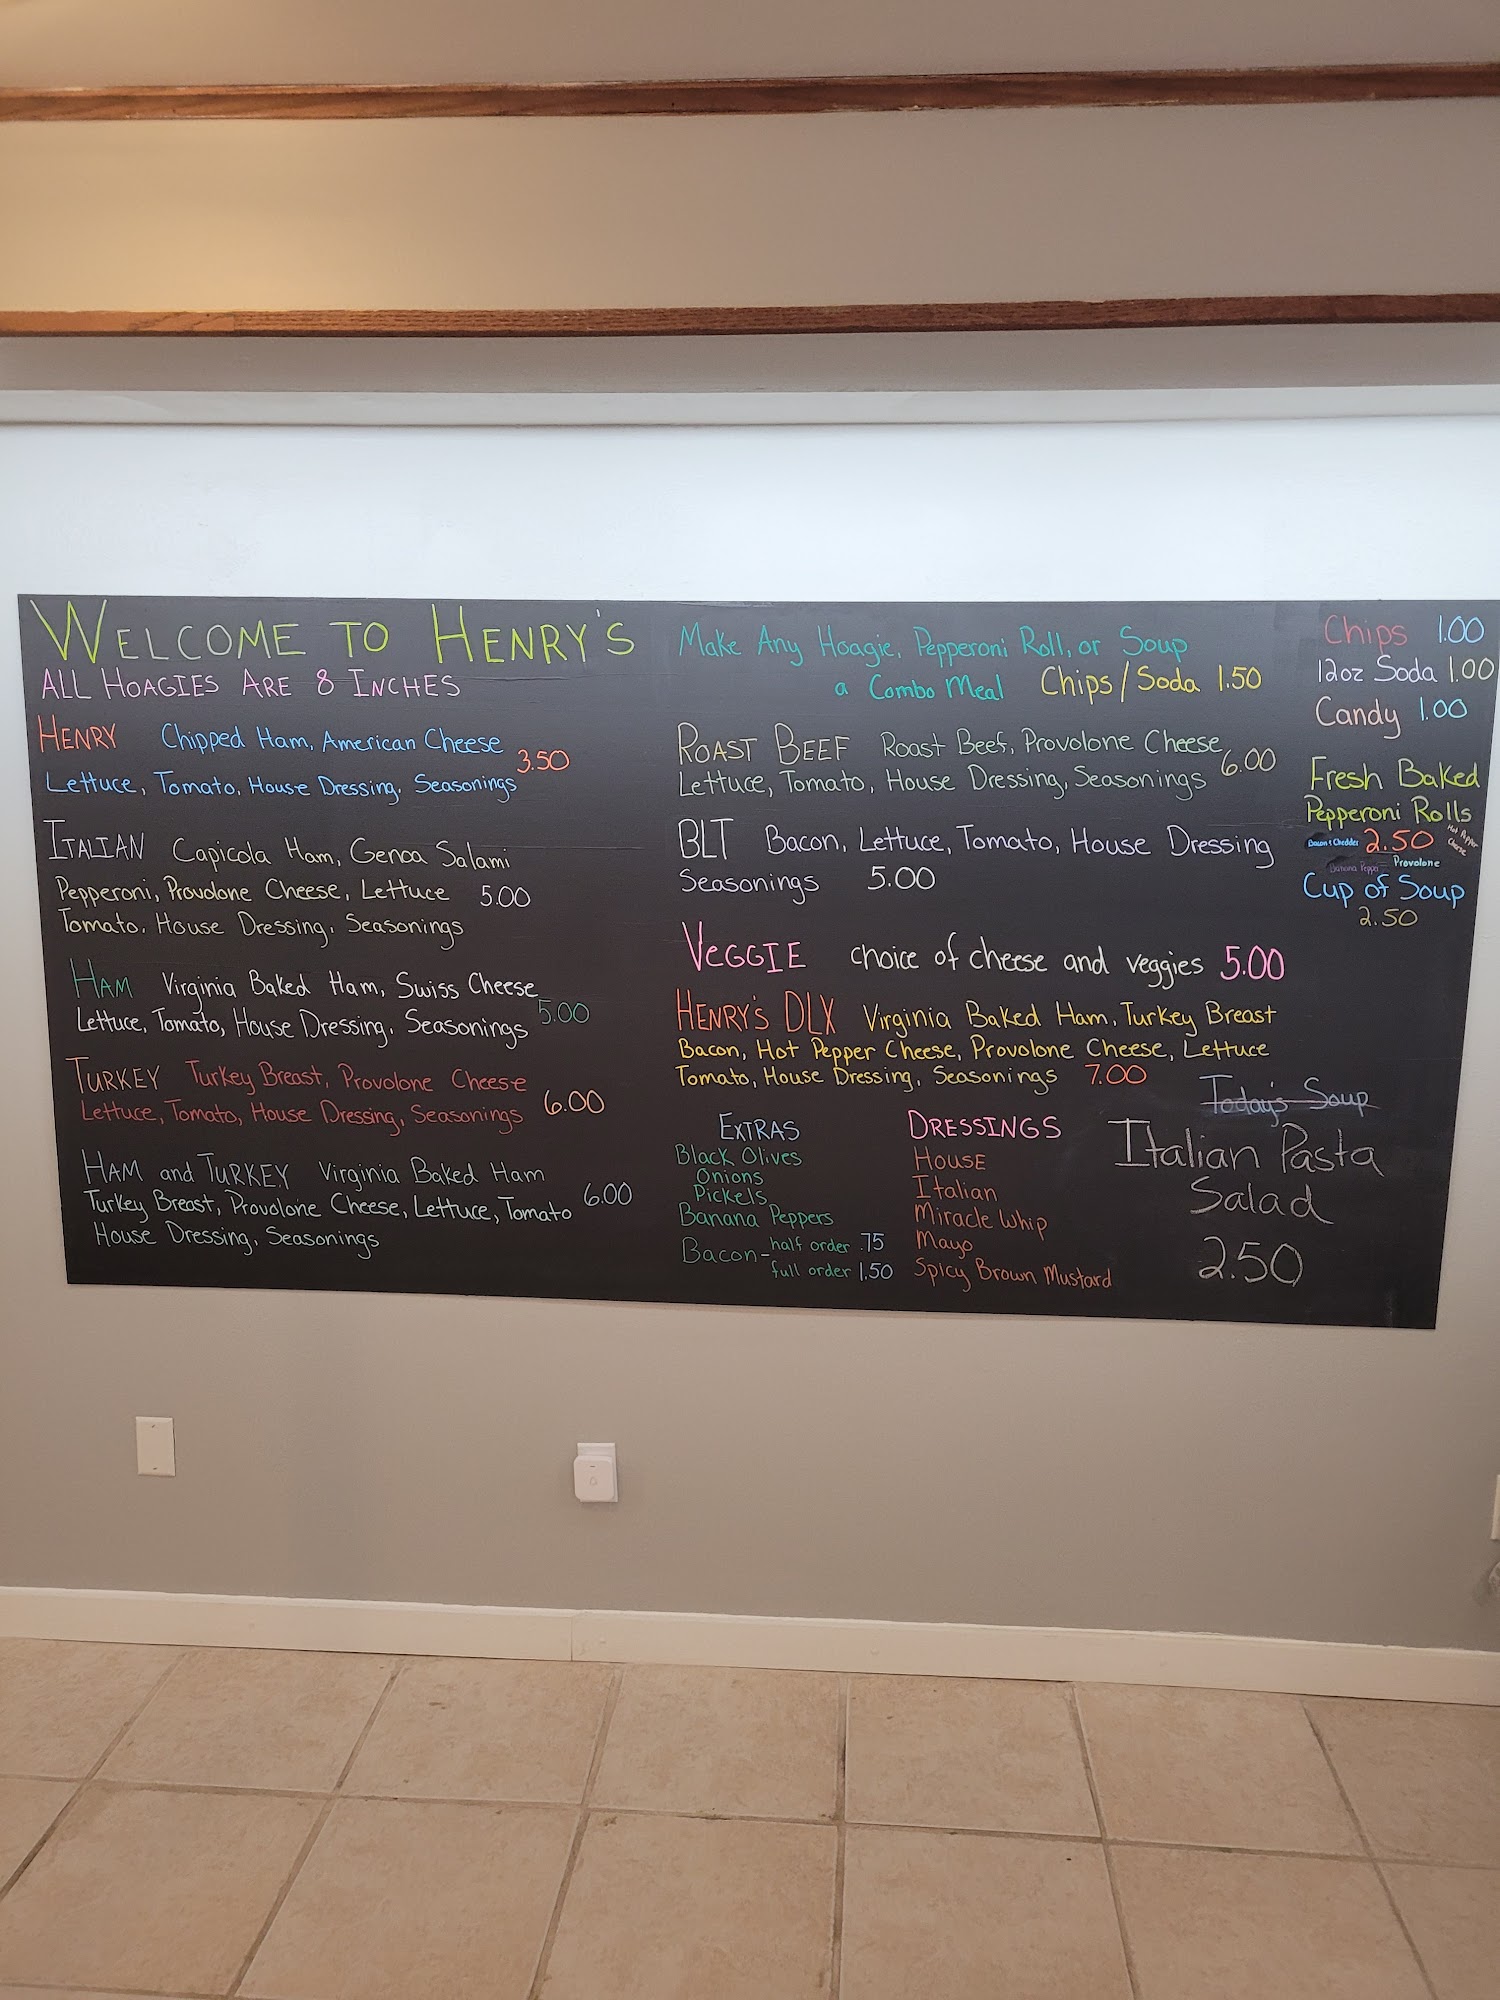 WELCOME TO HENRY'S
ALL HOAGIES ARE 8 INCHES
HENRY Chipped Ham, American Cheese
Lettuce, Tomato, House Dressing, Seasonings 3.50
ITALIAN Capicola Ham, Genoa Salami
Pepperoni, Provolone Cheese, Lettuce 5.00
Tomato, House Dressing, Seasonings
HAM Virginia Baked Ham, Swiss Cheese
Lettuce, Tomato, House Dressing, Seasonings 5.00
TURKEY Turkey Breast, Provolone Cheese
Lettuce, Tomato, House Dressing, Seasonings 6.00
HAM and TURKEY Virginia Baked Ham
Turkey Breast, Provolone Cheese, Lettuce, Tomato 6.00
House Dressing, Seasonings
Make Any Hoagie, Pepperoni Roll, or Soup
a Combo Meal Chips/Soda 1.50
ROAST BEEF Roast Beef, Provolone Cheese
Lettuce, Tomato, House Dressing, Seasonings 6.00
BLT Bacon, Lettuce, Tomato, House Dressing
Seasonings 5.00
VEGGIE choice of cheese and veggies 5.00
HENRY'S DLX Virginia Baked Ham, Turkey Breast
Bacon, Hot Pepper Cheese, Provolone Cheese, Lettuce
Tomato, House Dressing, Seasonings 7.00
EXTRAS
Black Olives
Onions
Pickels
Banana Peppers
Bacon - half order .75
full order 1.50
DRESSINGS
House
Italian
Miracle Whip
Mayo
Spicy Brown Mustard
Today's Soup
Italian Pasta
Salad
2.50
Chips 1.00
12oz Soda 1.00
Candy 1.00
Fresh Baked
Pepperoni Rolls
Bacon & Chedder 2.50 Hot Pepper Cheese
Banana Pepper Provolone
Cup of Soup
2.50